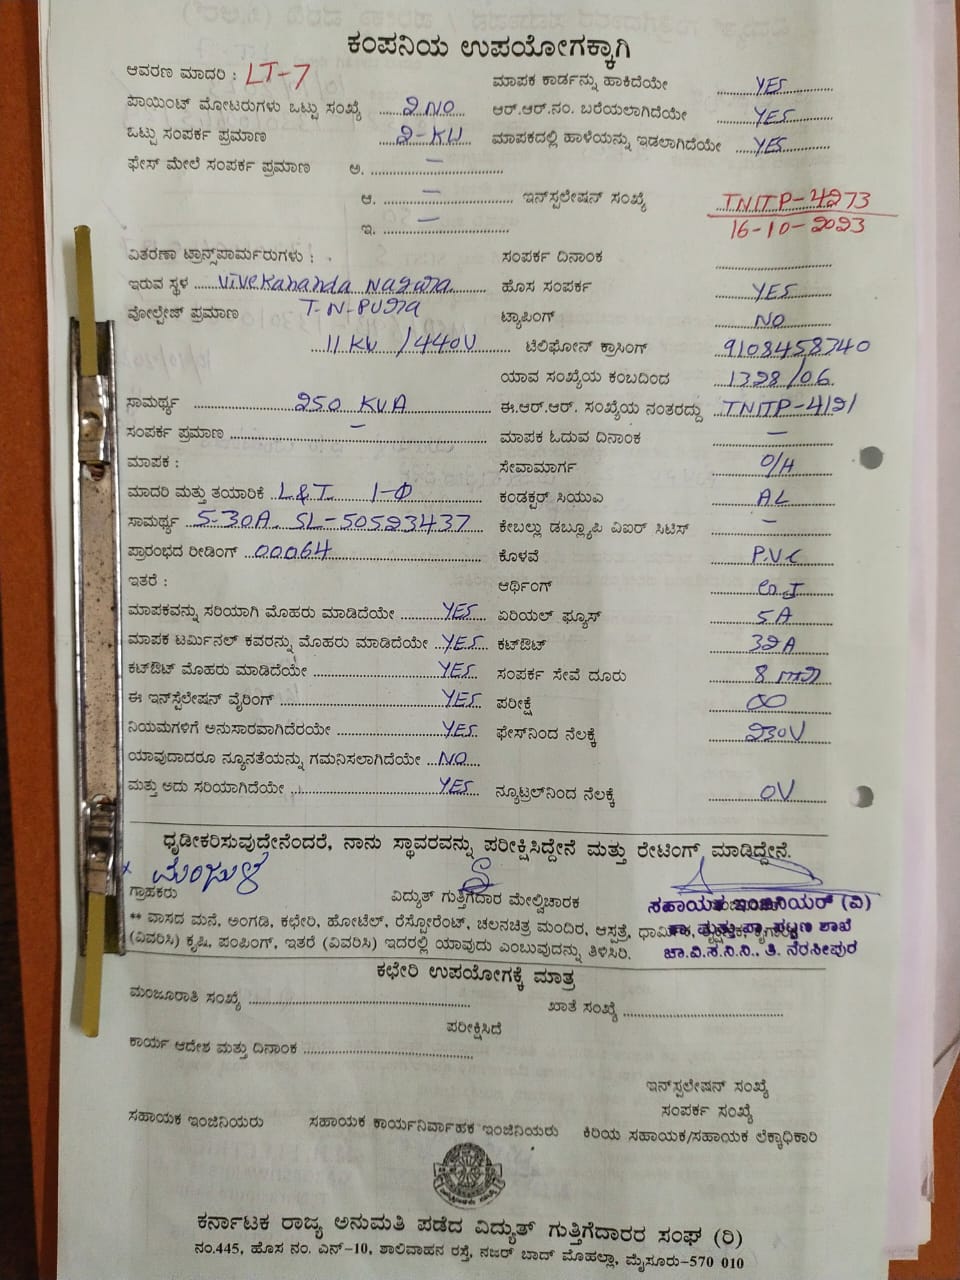 ಕಂಪನಿಯ ಉಪಯೋಗಕ್ಕಾಗಿ
ಆವರಣ ಮಾದರಿ : LT-7 ಮಾಪಕ ಕಾರ್ಡನ್ನು ಹಾಕಿದೆಯೇ YES
ಪಾಯಿಂಟ್ ಮೋಟರುಗಳು ಒಟ್ಟು ಸಂಖ್ಯೆ 2 NO ಆರ್.ಆರ್.ನಂ. ಬರೆಯಲಾಗಿದೆಯೇ YES
ಒಟ್ಟು ಸಂಪರ್ಕ ಪ್ರಮಾಣ 2-KW ಮಾಪಕದಲ್ಲಿ ಹಾಳೆಯನ್ನು ಇಡಲಾಗಿದೆಯೇ YES
ಫೇಸ್ ಮೇಲೆ ಸಂಪರ್ಕ ಪ್ರಮಾಣ ಅ. —
ಆ. — ಇನ್‌ಸ್ಟಲೇಷನ್ ಸಂಖ್ಯೆ TNITP-4273
ಇ. — 16-10-2023
ವಿತರಣಾ ಟ್ರಾನ್ಸ್‌ಪಾರ್ಮರುಗಳು : ಸಂಪರ್ಕ ದಿನಾಂಕ
ಇರುವ ಸ್ಥಳ Vivekananda Nagara ಹೊಸ ಸಂಪರ್ಕ YES
ವೋಲ್ಟೇಜ್ ಪ್ರಮಾಣ T-N-PURA ಟ್ಯಾಪಿಂಗ್ NO
11 KV /440V ಟೆಲಿಫೋನ್ ಕ್ರಾಸಿಂಗ್ 9108458340
ಯಾವ ಸಂಖ್ಯೆಯ ಕಂಬದಿಂದ 1328/06
ಸಾಮರ್ಥ್ಯ 250 KVA ಈ.ಆರ್.ಆರ್. ಸಂಖ್ಯೆಯ ನಂತರದ್ದು TNITP-4121
ಸಂಪರ್ಕ ಪ್ರಮಾಣ — ಮಾಪಕ ಓದುವ ದಿನಾಂಕ —
ಮಾಪಕ : ಸೇವಾಮಾರ್ಗ O/H
ಮಾದರಿ ಮತ್ತು ತಯಾರಿಕೆ L&T 1-Φ ಕಂಡಕ್ಟರ್ ಸಿಯುವಿ AL
ಸಾಮರ್ಥ್ಯ 5-30A. SL-50523437 ಕೇಬಲ್ಲು ಡಬ್ಲ್ಯೂಪಿ ವಿಐರ್ ಸಿಟಿಸ್ —
ಪ್ರಾರಂಭದ ರೀಡಿಂಗ್ 00064 ಕೊಳವೆ P.V.C
ಇತರೆ : ಆರ್ಥಿಂಗ್
ಮಾಪಕವನ್ನು ಸರಿಯಾಗಿ ಮೊಹರು ಮಾಡಿದೆಯೇ YES ಏರಿಯಲ್ ಫ್ಯೂಸ್ 5A
ಮಾಪಕ ಟರ್ಮಿನಲ್ ಕವರನ್ನು ಮೊಹರು ಮಾಡಿದೆಯೇ YES ಕಟ್‌ಔಟ್ 32A
ಕಟ್‌ಔಟ್ ಮೊಹರು ಮಾಡಿದೆಯೇ YES ಸಂಪರ್ಕ ಸೇವೆ ದೂರು 8
ಈ ಇನ್‌ಸ್ಟೆಲೇಷನ್ ವೈರಿಂಗ್ YES ಪರೀಕ್ಷೆ ∞
ನಿಯಮಗಳಿಗೆ ಅನುಸಾರವಾಗಿದೆರಯೇ YES ಫೇಸ್‌ನಿಂದ ನೆಲಕ್ಕೆ 230V
ಯಾವುದಾದರೂ ನ್ಯೂನತೆಯನ್ನು ಗಮನಿಸಲಾಗಿದೆಯೇ NO
ಮತ್ತು ಅದು ಸರಿಯಾಗಿದೆಯೇ YES ನ್ಯೂಟ್ರಲ್‌ನಿಂದ ನೆಲಕ್ಕೆ 0V
ಧೃಡೀಕರಿಸುವುದೇನೆಂದರೆ, ನಾನು ಸ್ಥಾವರವನ್ನು ಪರೀಕ್ಷಿಸಿದ್ದೇನೆ ಮತ್ತು ರೇಟಿಂಗ್ ಮಾಡಿದ್ದೇನೆ.
ಮಂಜುಳ
ಗ್ರಾಹಕರು ವಿದ್ಯುತ್ ಗುತ್ತಿಗೆದಾರ ಮೇಲ್ವಿಚಾರಕ ಸಹಾಯಕ ಇಂಜಿನಿಯರ್ (ವಿ)
** ವಾಸದ ಮನೆ, ಅಂಗಡಿ, ಕಛೇರಿ, ಹೋಟೆಲ್, ರೆಸ್ಟೋರೆಂಟ್, ಚಲನಚಿತ್ರ ಮಂದಿರ, ಆಸ್ಪತ್ರೆ, ಧಾರ್ಮಿಕ,
(ವಿವರಿಸಿ) ಕೃಷಿ, ಪಂಪಿಂಗ್, ಇತರೆ (ವಿವರಿಸಿ) ಇದರಲ್ಲಿ ಯಾವುದು ಎಂಬುವುದನ್ನು ತಿಳಿಸಿರಿ.
ಚಾ.ವಿ.ಸ.ನಿ.ನಿ., ತಿ. ನರಸೀಪುರ
ಕಛೇರಿ ಉಪಯೋಗಕ್ಕೆ ಮಾತ್ರ
ಮಂಜೂರಾತಿ ಸಂಖ್ಯೆ ಖಾತೆ ಸಂಖ್ಯೆ
ಪರೀಕ್ಷಿಸಿದೆ
ಕಾರ್ಯ ಆದೇಶ ಮತ್ತು ದಿನಾಂಕ
ಇನ್‌ಸ್ಟಲೇಷನ್ ಸಂಖ್ಯೆ
ಸಂಪರ್ಕ ಸಂಖ್ಯೆ
ಸಹಾಯಕ ಇಂಜಿನಿಯರು ಸಹಾಯಕ ಕಾರ್ಯನಿರ್ವಾಹಕ ಇಂಜಿನಿಯರು ಕಿರಿಯ ಸಹಾಯಕ/ಸಹಾಯಕ ಲೆಕ್ಕಾಧಿಕಾರಿ
ಕರ್ನಾಟಕ ರಾಜ್ಯ ಅನುಮತಿ ಪಡೆದ ವಿದ್ಯುತ್ ಗುತ್ತಿಗೆದಾರರ ಸಂಘ (ರಿ)
ನಂ.445, ಹೊಸ ನಂ. ಎನ್-10, ಶಾಲಿವಾಹನ ರಸ್ತೆ, ನಜರ್ ಬಾದ್ ಮೊಹಲ್ಲಾ, ಮೈಸೂರು-570 010